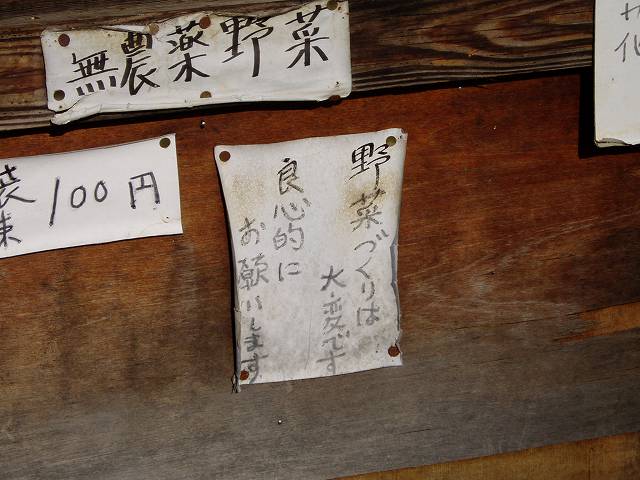 無農薬野菜
100円
野菜づくりは
大変です
良心的に
お願いします